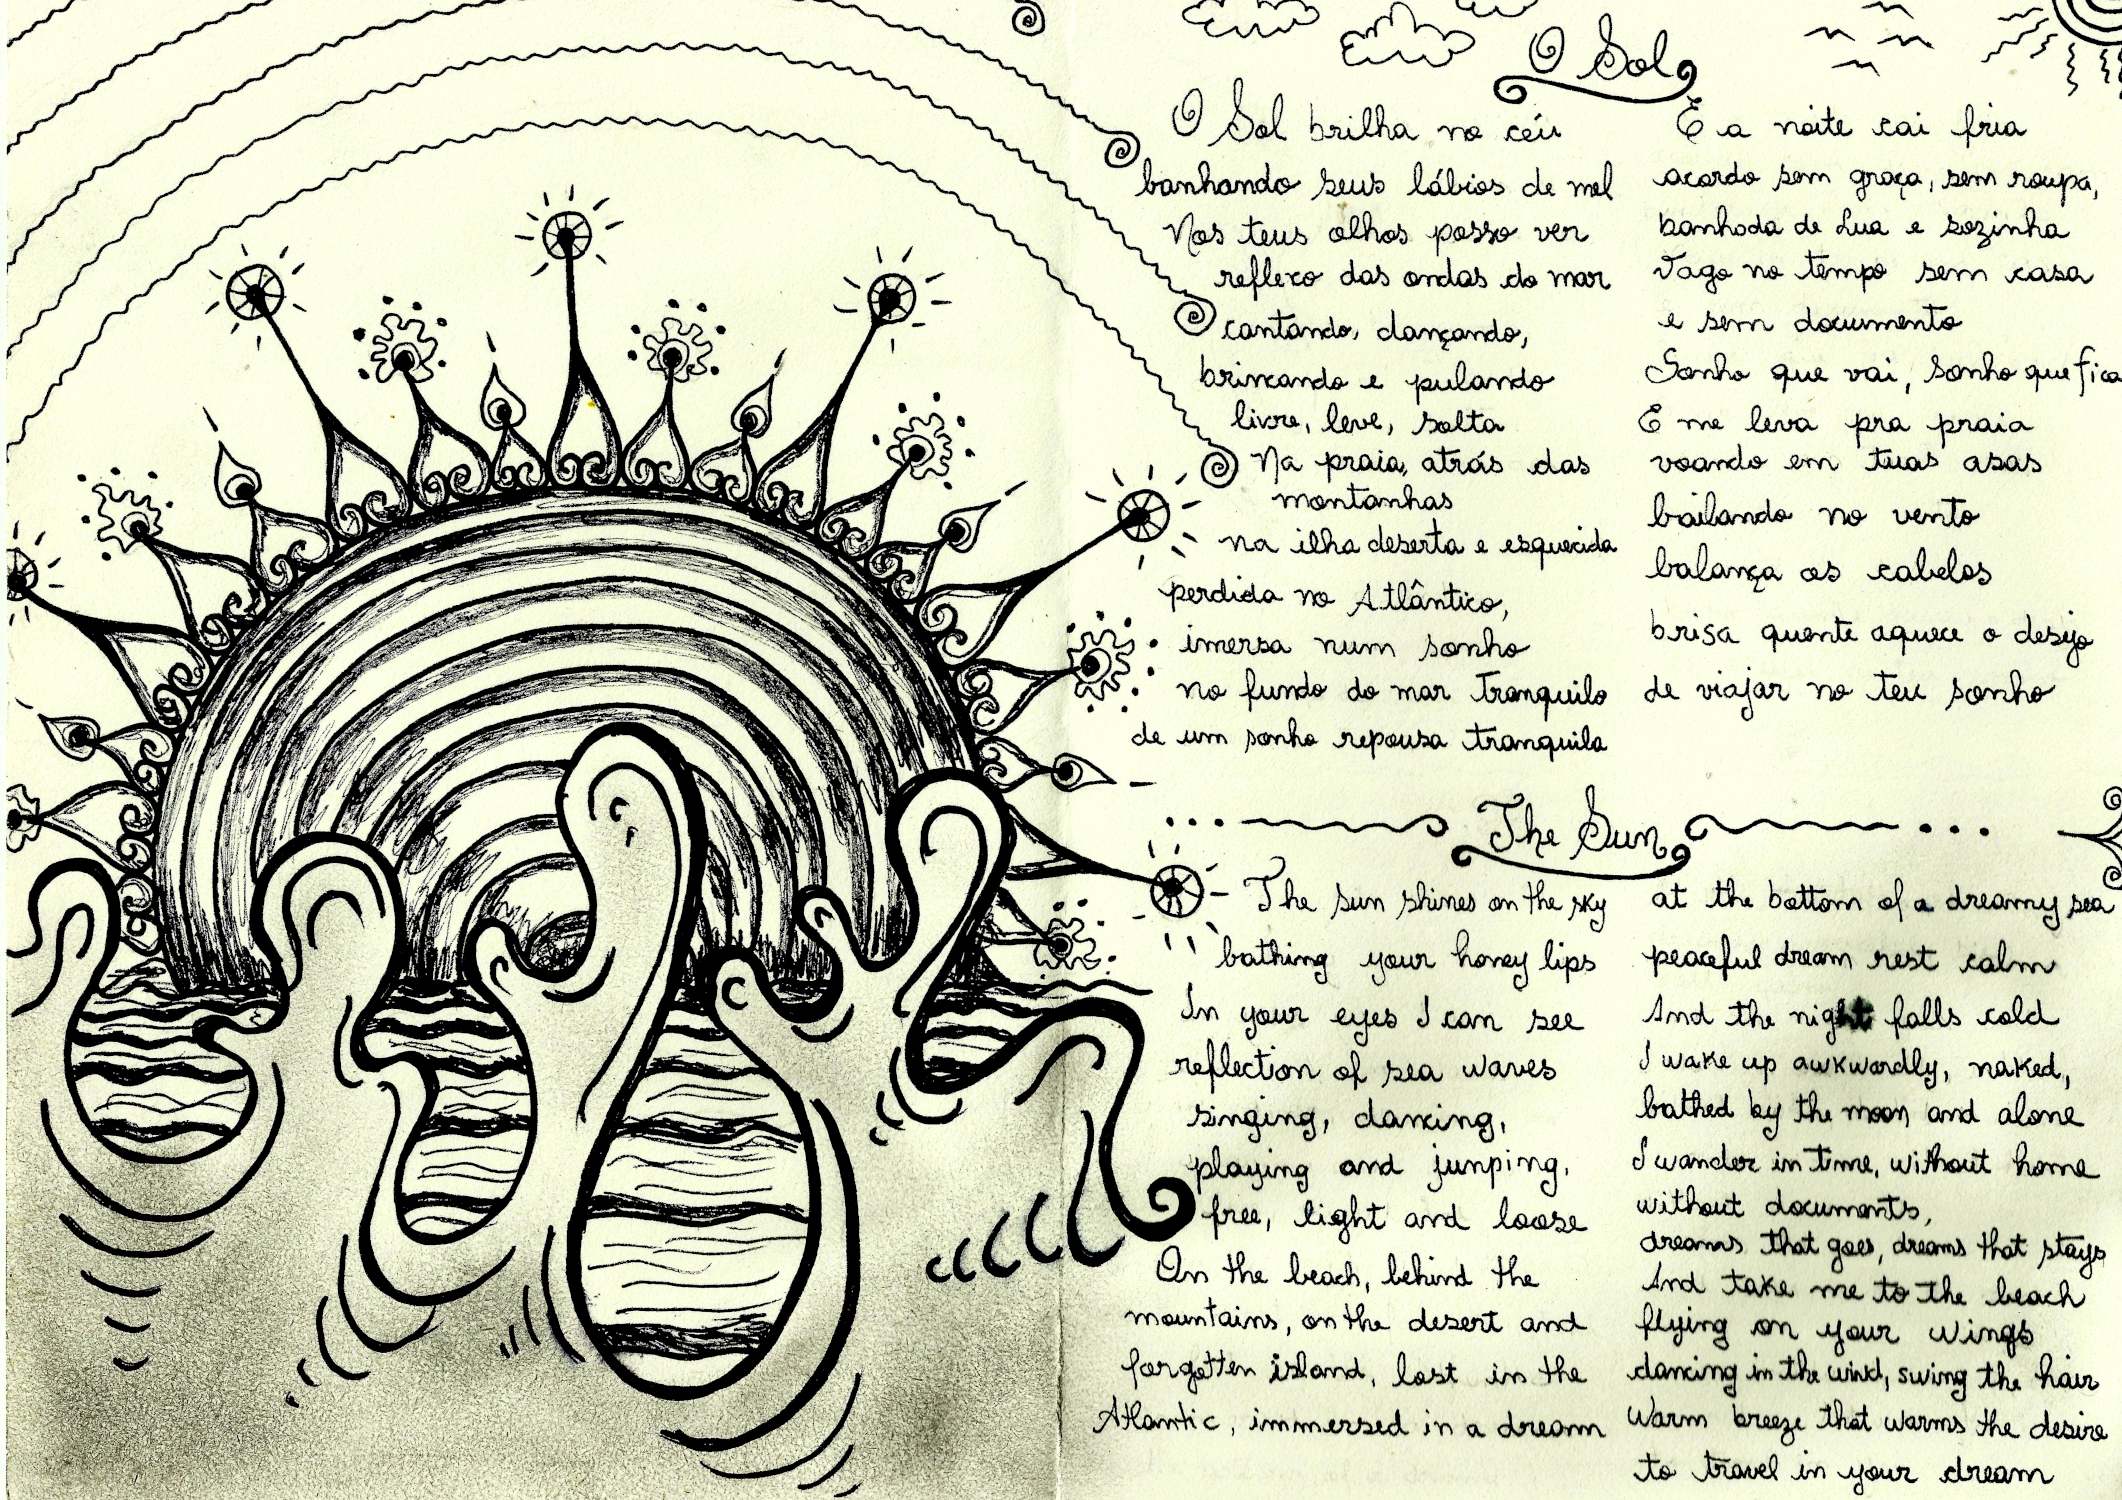 O Sol
O Sol brilha no céu
banhando seus lábios de mel
Nos teus olhos posso ver
reflexo das ondas do mar
cantando, dançando,
brincando e pulando
livre, leve, solta
Na praia, atrás das
montanhas
na ilha deserta e esquecida
perdida no Atlântico,
imersa num sonho
no fundo do mar tranquilo
de um sonho repousa tranquila
E a noite cai fria
acordo sem graça, sem roupa,
banhada de Lua e sozinha
Vago no tempo sem casa
e sem documento
Sonho que vai, sonho que fica
E me leva pra praia
voando em tuas asas
bailando no vento
balança os cabelos
brisa quente aquece o desejo
de viajar no teu sonho
The Sun
The sun shines on the sky
bathing your honey lips
In your eyes I can see
reflection of sea waves
singing, dancing,
playing and junping,
free, light and loose
On the beach, behind the
mountains, on the desert and
forgotten island, lost in the
Atlantic, immersed in a dream
at the bottom of a dreamy sea
peaceful dream rest calm
And the night falls cold
I wake up awkwardly, naked,
bathed by the moon and alone
I wander in time, without home
without documents,
dreams that goes, dreams that stays
And take me to the beach
flying on your wings
dancing in the wind, swing the hair
Warm breeze that warms the desire
to travel in your dream